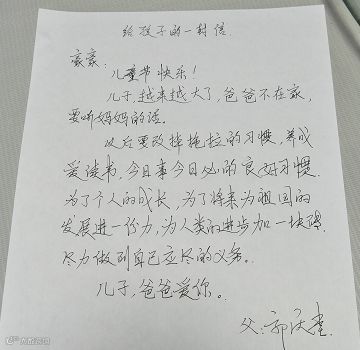 给孩子的一封信
豪豪:
儿童节快乐!
儿子,越来越大了,爸爸不在家,
要听妈妈的话。
以后要改掉拖拉的习惯,养成
爱读书,今日事今日必的良好习惯.
为了个人的成长,为了将来为祖国的
发展进一份力,为人类的进步加一块砖
尽力做到自己应尽的义务。
儿子,爸爸爱你。
父:郭庆
大众点评